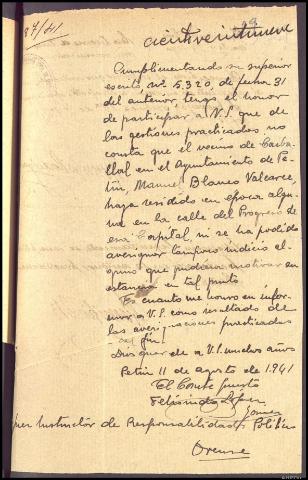 cientoveintinueve
Cumplimentando su superior
escrito nº 5.320, de fecha 31
del anterior, tengo el honor
de participar a V.S. que de
las gestiones practicadas no
consta que el vecino de Carba-
llal en el Ayuntamiento de Pe-
tin, Manuel Blanco Valcarce,
haya residido en época algu-
na en la calle del Progreso de
esa Capital, ni se ha podido
averiguar tampoco indicio al-
guno que pudiera motivar su
estancia en tal punto
Es cuanto me honro en infor-
mar a V.S. como resultado de
las averiguaciones practicadas
al fin.
Dios guarde a V.S. muchos años
Petin 11 de agosto de 1941
El Comte Puesto
Gomez
Juez Instructor de Responsabilidades Politicas
Orense